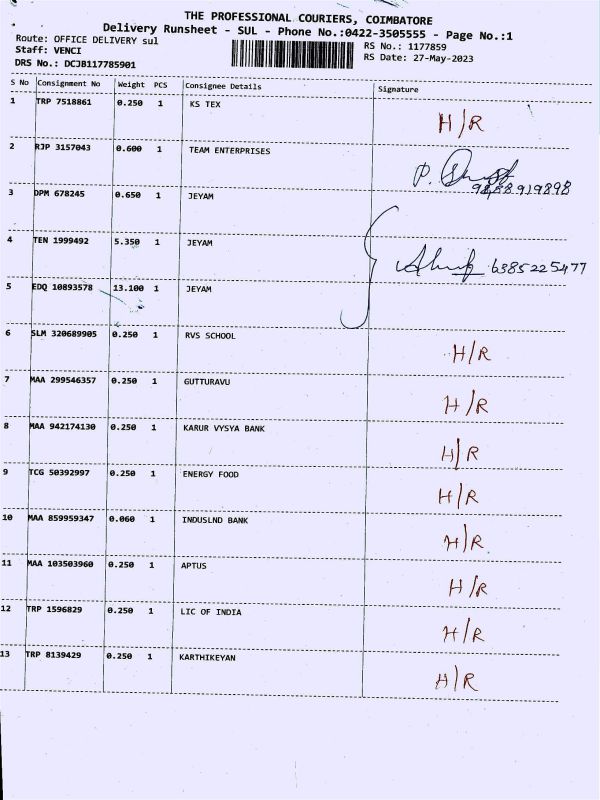 THE PROFESSIONAL COURIERS, COIMBATORE
Delivery Runsheet - SUL - Phone No.:0422-3505555 - Page No.:1
Route: OFFICE DELIVERY sul
RS No.: 1177859
Staff: VENCI
RS Date: 27-May-2023
DRS No.: DCJB117785901
S No Consignment No Weight PCS Consignee Details Signature
1 TRP 7518861 0.250 1 KS TEX H/R
2 RJP 3157043 0.600 1 TEAM ENTERPRISES P.
3 DPM 678245 0.650 1 JEYAM
4 TEN 1999492 5.350 1 JEYAM 6385225477
5 EDQ 10893578 13.100 1 JEYAM
6 SLM 320689905 0.250 1 RVS SCHOOL H/R
7 MAA 299546357 0.250 1 GUTTURAVU H/R
8 MAA 942174130 0.250 1 KARUR VYSYA BANK H/R
9 TCG 50392997 0.250 1 ENERGY FOOD H/R
10 MAA 859959347 0.060 1 INDUSLND BANK H/R
11 MAA 103503960 0.250 1 APTUS H/R
12 TRP 1596829 0.250 1 LIC OF INDIA H/R
13 TRP 8139429 0.250 1 KARTHIKEYAN H/R